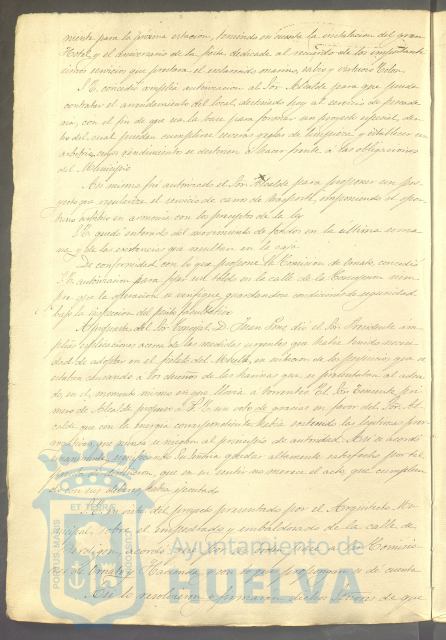 mente para la próxima estación, teniendo en cuenta la instalación del gran
Hotel, y el aniversario de la fecha dedicada al recuerdo de los importantí
simos servicios que prestara el esclarecido marino, sabio y virtuoso Colon.
S.E. concedió amplia autorización al Sor Alcalde para que pueda
contratar el arrendamiento del local, destinado hoy al servicio de pescade
ria, con el fin de que sea la base para formar un proyecto especial, den
tro del cual puedan cumplirse severas reglas de limpieza y establecer un
arbitrio cuyos rendimientos se destinen a hacer frente a las obligaciones
del Municipio
Asi mismo fué autorizado el Sor Alcalde para proponer un pro
yecto que regularice el servicio de carros de transporte, imponiendo el opor
tuno arbitrio en armonia con los preceptos de la ley
S.E. quedó enterado del movimiento de fondos en la última sema
na, y de las existencias que resultan en la caja
De conformidad con lo que propone la Comision de Ornato, concedió
S.E. autorización para fijar un toldo en la calle de la Concepcion siem
pre que la operación se verifique guardandose condiciones de seguridad,
bajo la inspeccion del perito facultativo
A propuesta del Sor Concejal D. Juan dió el Sor Presidente am
plias esplicaciones acerca de las medidas urgentes que habia tenido necesi
dad de adoptar en el de en evitacion de los perjuicios que se
estaban causando a los dueños de las harinas que se presentaban al adeu
do, en el momento mismo en que llovia a torrentes. El Sor Teniente pri
mero de Alcalde propuso a S.E. un voto de gracias en favor del Sor Al
calde que con la energia correspondiente habia sostenido las legítimas prer
rogativas que nunca se niegan al principio de autoridad. Asi se acordó
quedar altamente satisfecho por tal
que en su sentir no merece el acto, que cumplien
do con sus deberes habia ejecutado
vista del proyecto presentado por el Arquitecto Mu
nicipal, sobre el empedrado y embaldosado de la calle de
acordó que pase a las Comisio
nes de Ornato y Hacienda de cuenta
Asi lo resolvieron y firmaron dichos Señores de que
ET TERRÆ
PORTUS MARIS
Ayuntamiento de
HUELVA